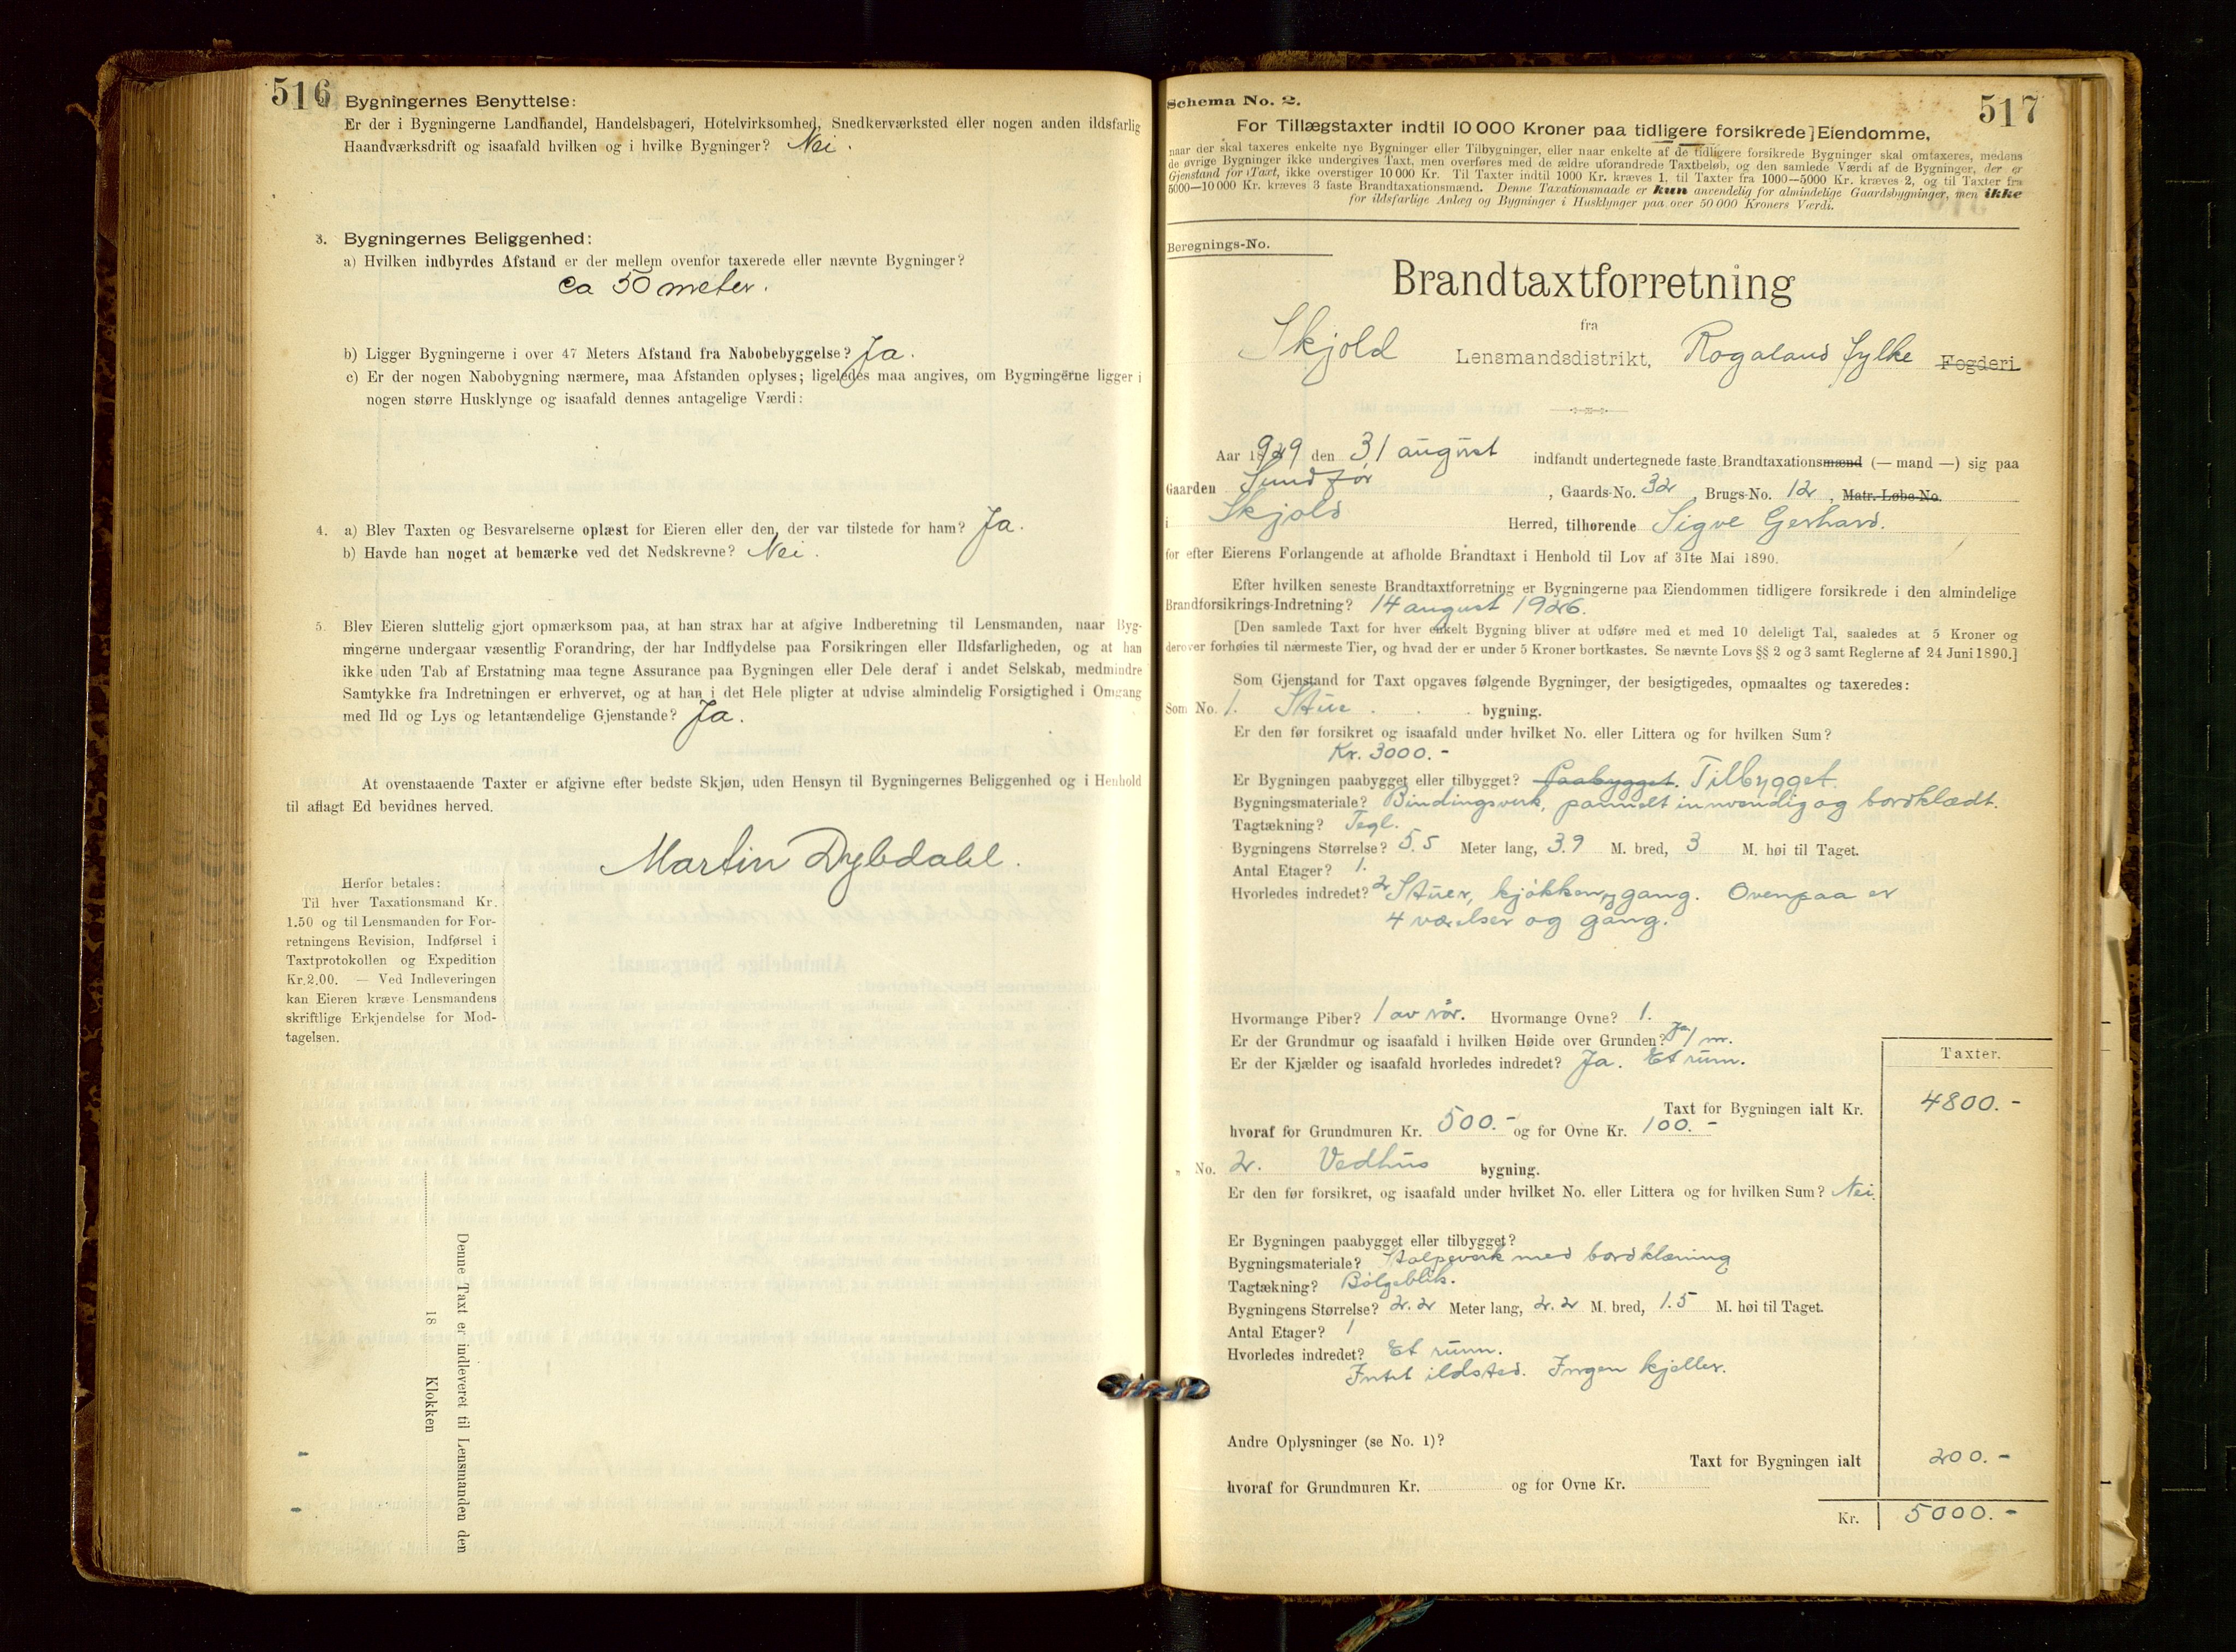 516
Bygningernes Benyttelse:
Er der i Bygningerne Landhandel, Handelsbageri, Hotelvirksomhed, Snedkerværksted eller nogen anden ildsfarlig
Haandværksdrift og isaafald hvilken og i hvilke Bygninger? Nei.
3. Bygningernes Beliggenhed:
a) Hvilken indbyrdes Afstand er der mellem ovenfor taxerede eller nævnte Bygninger?
ca 50 meter.
b) Ligger Bygningerne i over 47 Meters Afstand fra Nabobebyggelse? Ja.
c) Er der nogen Nabobygning nærmere, maa Afstanden oplyses; ligeledes maa angives, om Bygningerne ligger i
nogen større Husklynge og isaafald dennes antagelige Værdi:
4. a) Blev Taxten og Besvarelserne oplæst for Eieren eller den, der var tilstede for ham? Ja.
b) Havde han noget at bemærke ved det Nedskrevne? Nei.
5. Blev Eieren sluttelig gjort opmærksom paa, at han strax har at afgive Indberetning til Lensmanden, naar Byg-
ningerne undergaar væsentlig Forandring, der har Indflydelse paa Forsikringen eller Ildsfarligheden, og at han
ikke uden Tab af Erstatning maa tegne Assurance paa Bygningen eller Dele deraf i andet Selskab, medmindre
Samtykke fra Indretningen er erhvervet, og at han i det Hele pligter at udvise almindelig Forsigtighed i Omgang
med Ild og Lys og letantændelige Gjenstande? Ja.
At ovenstaaende Taxter er afgivne efter bedste Skjøn, uden Hensyn til Bygningernes Beliggenhed og i Henhold
til aflagt Ed bevidnes herved.
Martin Dybdahl.
Herfor betales:
Til hver Taxationsmand Kr.
1.50 og til Lensmanden for For-
retningens Revision, Indførsel i
Taxtprotokollen og Expedition
Kr. 2.00. — Ved Indleveringen
kan Eieren kræve Lensmandens
skriftlige Erkjendelse for Mod-
tagelsen.
Denne Taxt er indleveret til Lensmanden den
18 Klokken
517
Schema No. 2.
For Tillægstaxter indtil 10 000 Kroner paa tidligere forsikrede] Eiendomme,
naar der skal taxeres enkelte nye Bygninger eller Tilbygninger, eller naar enkelte af de tidligere forsikrede Bygninger skal omtaxeres, medens
de øvrige Bygninger ikke undergives Taxt, men overføres med de ældre uforandrede Taxtbeløb, og den samlede Værdi af de Bygninger, der er
Gjenstand for Taxt, ikke overstiger 10 000 Kr. Til Taxter indtil 1000 Kr. kræves 1, til Taxter fra 1000—5000 Kr. kræves 2, og til Taxter fra
5000—10 000 Kr. kræves 3 faste Brandtaxationsmænd. Denne Taxationsmaade er kun anvendelig for almindelige Gaardsbygninger, men ikke
for ildsfarlige Anlæg og Bygninger i Husklynger paa over 50 000 Kroners Værdi.
Beregnings-No.
Brandtaxtforretning
fra
Skjold Lensmandsdistrikt, Rogaland fylke Fogderi
Aar 1929 den 31 august indfandt undertegnede faste Brandtaxationsmænd (— mand —) sig paa
Gaarden Sundfør, Gaards-No. 32, Brugs-No. 12, Matr.-Løbe-No.
i Skjold Herred, tilhørende Sigve Gerhard.
for efter Eierens Forlangende at afholde Brandtaxt i Henhold til Lov af 31te Mai 1890.
Efter hvilken seneste Brandtaxtforretning er Bygningerne paa Eiendommen tidligere forsikrede i den almindelige
Brandforsikrings-Indretning? 14 august 1926.
[Den samlede Taxt for hver enkelt Bygning bliver at udføre med et med 10 deleligt Tal, saaledes at 5 Kroner og
derover forhøies til nærmeste Tier, og hvad der er under 5 Kroner bortkastes. Se nævnte Lovs §§ 2 og 3 samt Reglerne af 24 Juni 1890.]
Som Gjenstand for Taxt opgaves følgende Bygninger, der besigtigedes, opmaaltes og taxeredes:
Som No. 1. Stue bygning.
Er den før forsikret og isaafald under hvilket No. eller Littera og for hvilken Sum?
Kr. 3000.-
Er Bygningen paabygget eller tilbygget? Paabygget. Tilbygget.
Bygningsmateriale? Bindingsverk, pannelt innvendig og bordklædt.
Tagtækning? Tegl.
Bygningens Størrelse? 5.5 Meter lang, 3.9 M. bred, 3 M. høi til Taget.
Antal Etager? 1.
Hvorledes indredet? 2 Stuer, kjøkken og gang. Ovenpaa er
4 værelser og gang.
Hvormange Piber? 1 av rør. Hvormange Ovne? 1.
Er der Grundmur og isaafald i hvilken Høide over Grunden? Ja, 1 m.
Er der Kjælder og isaafald hvorledes indredet? Ja. Et rum.
Taxter.
Taxt for Bygningen ialt Kr. 4800.-
hvoraf for Grundmuren Kr. 500.- og for Ovne Kr. 100.-
" No. 2. Vedhus bygning.
Er den før forsikret, og isaafald under hvilket No. eller Littera og for hvilken Sum? Nei.
Er Bygningen paabygget eller tilbygget?
Bygningsmateriale? Stolpeverk med bordklæning
Tagtækning? Bølgeblik.
Bygningens Størrelse? 2.2 Meter lang, 2.2 M. bred, 1.5 M. høi til Taget.
Antal Etager? 1
Hvorledes indredet? Et rum.
Intet ildsted. Ingen kjeller.
Andre Oplysninger (se No. 1)?
Taxt for Bygningen ialt 200.-
hvoraf for Grundmuren Kr. og for Ovne Kr.
Kr. 5000.-